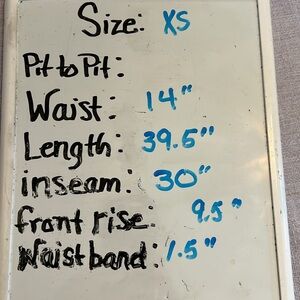 Size: XS
Pit to Pit:
Waist: 14"
Length: 39.5"
inseam: 30"
front rise: 9.5"
Waist band: 1.5"